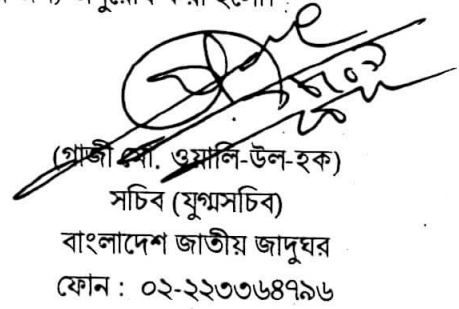 জন্য অনুরোধ করা হলো।
(গাজী মো. ওয়ালি-উল-হক)
সচিব (যুগ্মসচিব)
বাংলাদেশ জাতীয় জাদুঘর
ফোন : ০২-২২৩৩৬৪৭৯৬